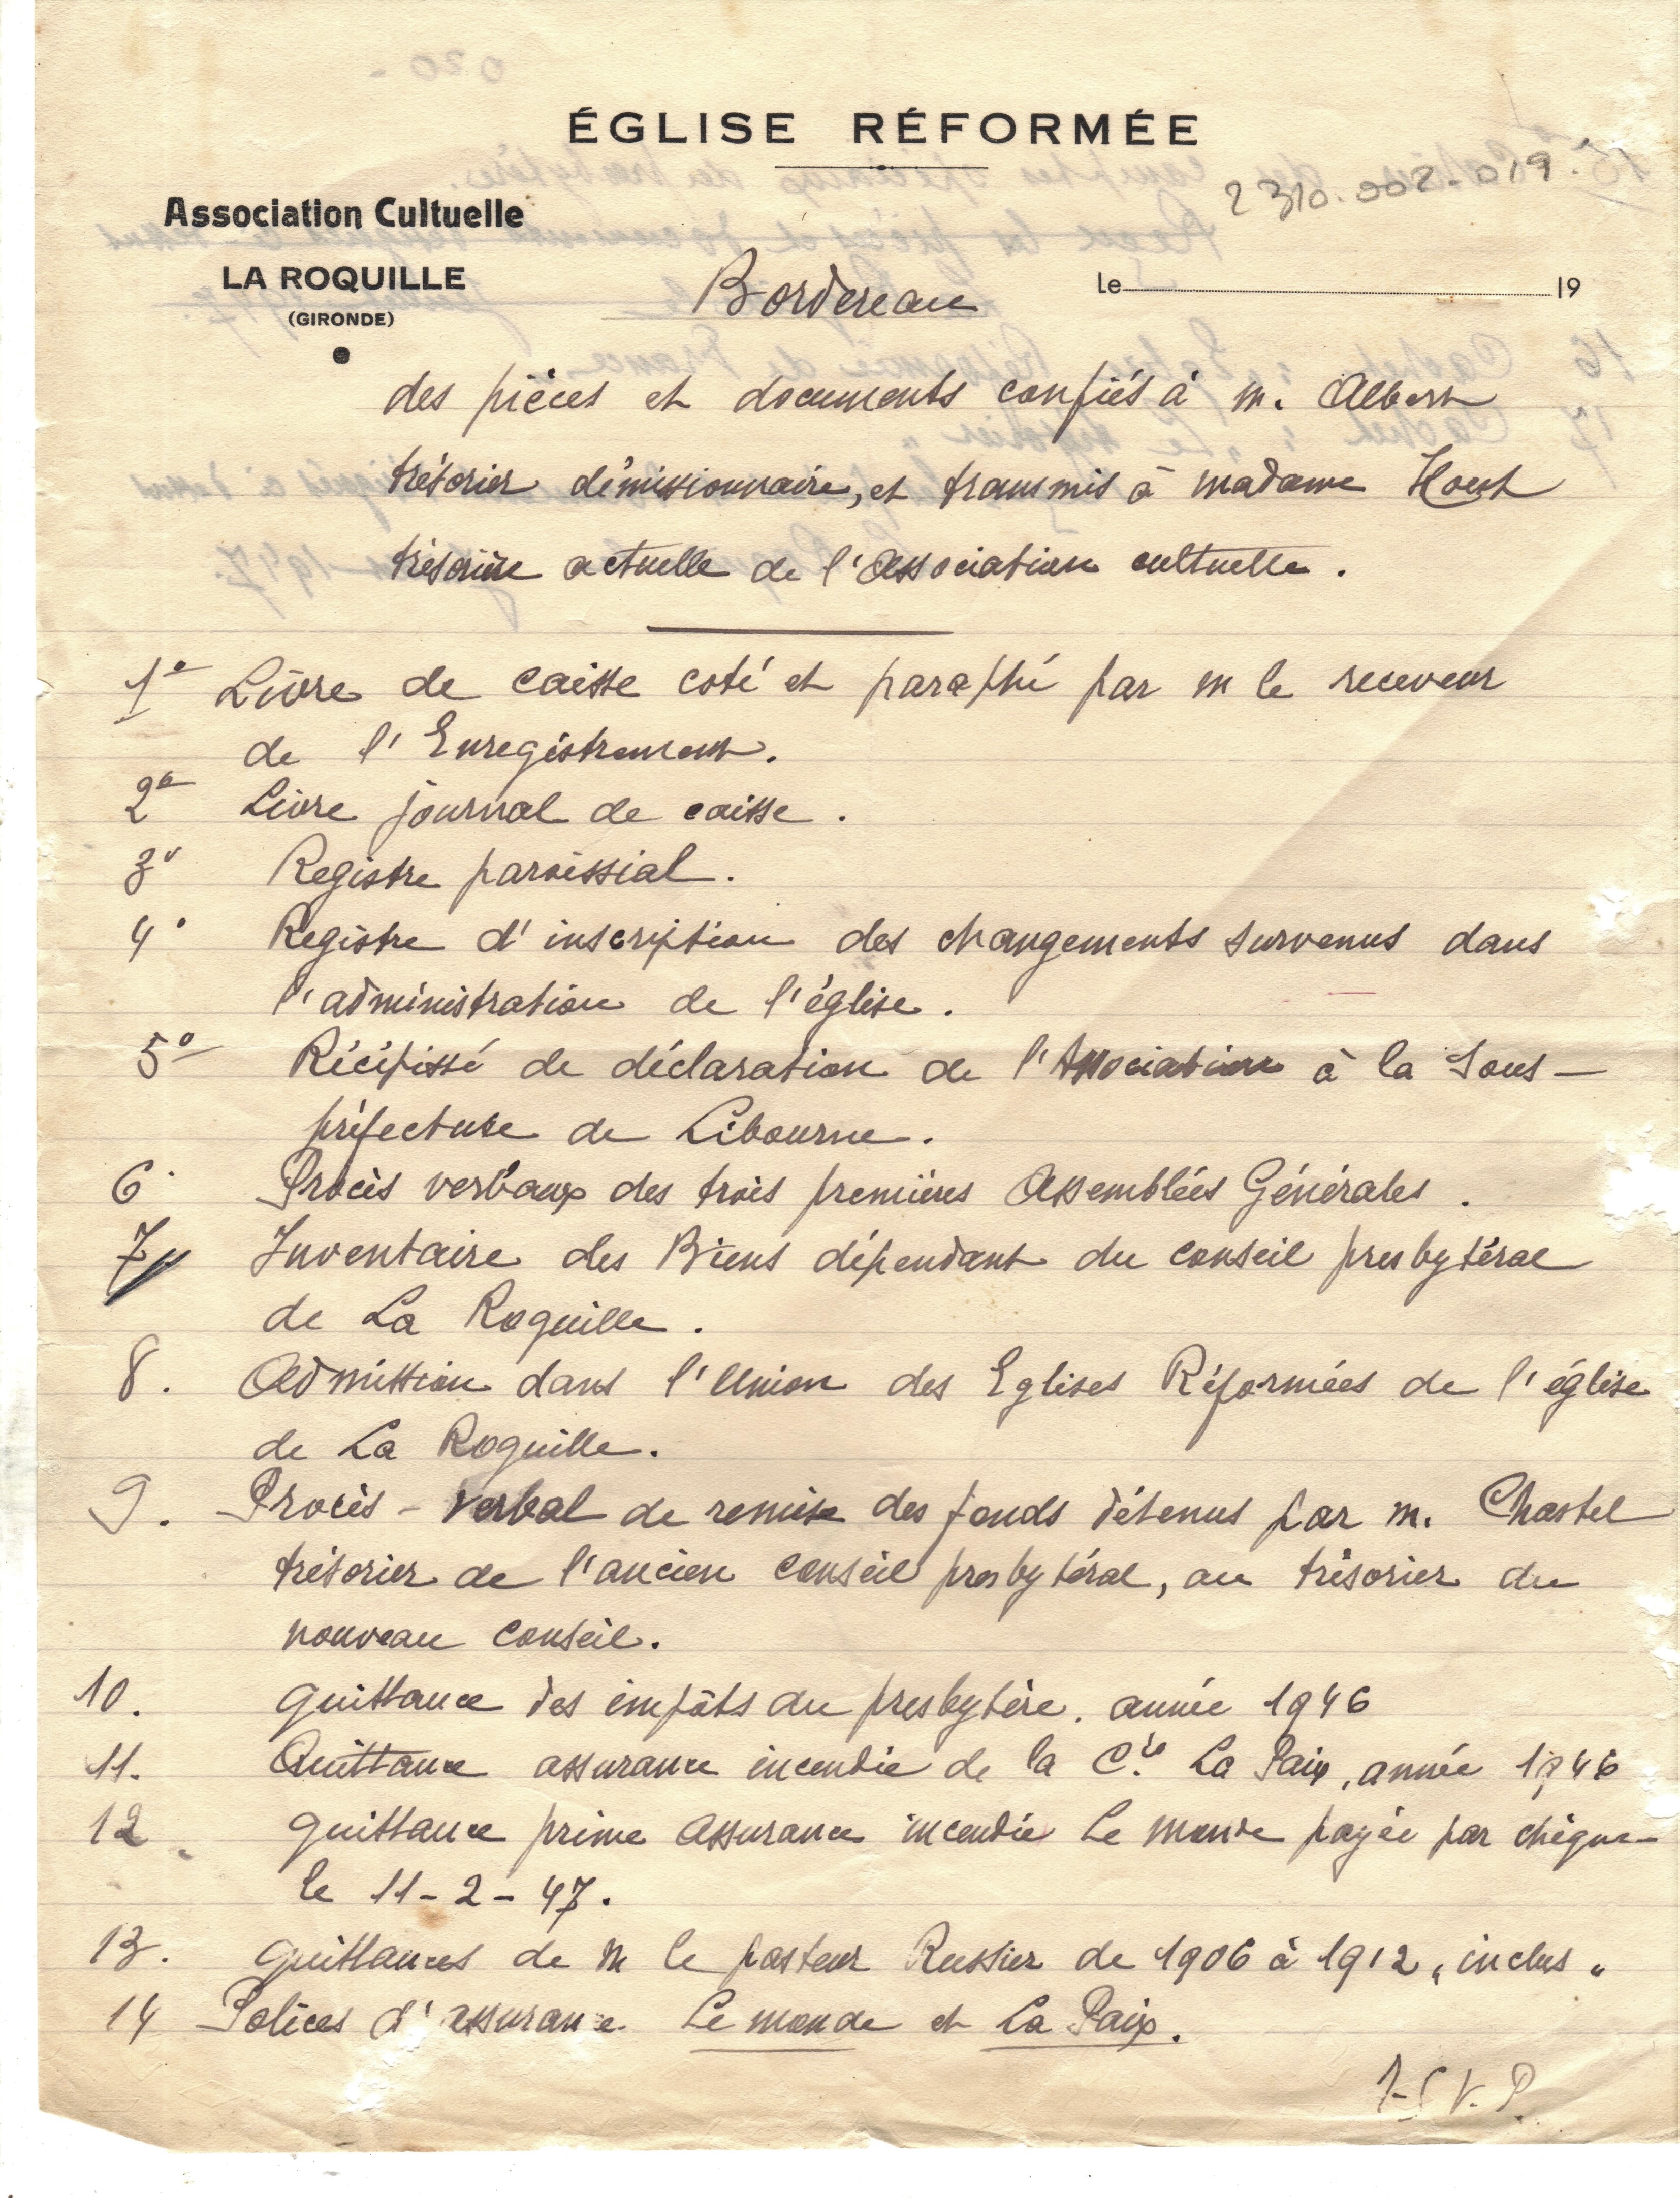 ÉGLISE RÉFORMÉE
2310.002.019.
Association Cultuelle
LA ROQUILLE
(GIRONDE)
Bordereau
Le 19
des pièces et documents confiés à M. Albert
trésorier démissionnaire, et transmis à madame
trésorière actuelle de l'Association cultuelle.
1° Livre de caisse coté et paraphé par M le receveur
de l'Enregistrement.
2° Livre journal de caisse.
3° Registre paroissial.
4° Registre d'inscription des changements survenus dans
l'administration de l'église.
5° Récépissé de déclaration de l'Association à la Sous-
préfecture de Libourne.
6° Procès verbaux des trois premières Assemblées Générales.
7 Inventaire des Biens dépendant du conseil presbytéral
de La Roquille.
8. Admission dans l'Union des Eglises Réformées de l'église
de La Roquille.
9. Procès-verbal de remise des fonds détenus par M. Chastel
trésorier de l'ancien conseil presbytéral, au trésorier du
nouveau conseil.
10. quittance des impôts du presbytère. année 1946
11. Quittance assurance incendie de la Cie La Paix, année 1946
12. quittance prime assurance incendie Le Monde payée par chèque
le 11-2-47.
13. quittances de M le pasteur Russier de 1906 à 1912 "inclus"
14 Polices d'assurance Le Monde et La Paix.
T.S.V.P.